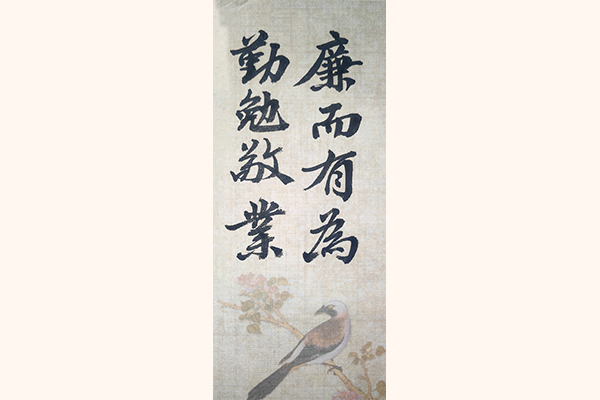 廉而有為
勤勉敬業